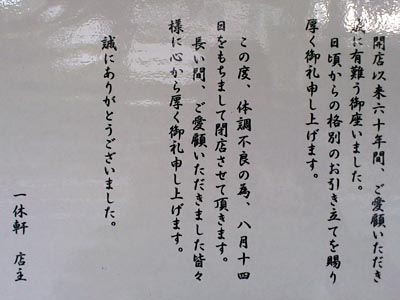 開店以来六十年間、ご愛顧いただき
誠に有難う御座いました。
日頃からの格別のお引き立てを賜り
厚く御礼申し上げます。
この度、体調不良の為、八月十四
日をもちまして閉店させて頂きます。
長い間、ご愛顧いただきました皆々
様に心から厚く御礼申し上げます。
誠にありがとうございました。
一休軒　店主